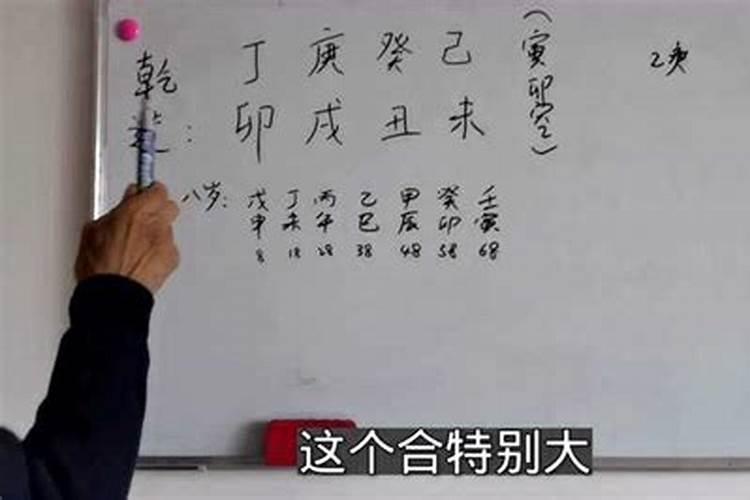 乾 丁 庚 癸 己 （寅卯空） 乙庚
造： 卯 戌 丑 未
八岁： 戊申 丁未 丙午 乙巳 甲辰 癸卯 壬寅
8 18 28 38 48 58 68
这个合特别大